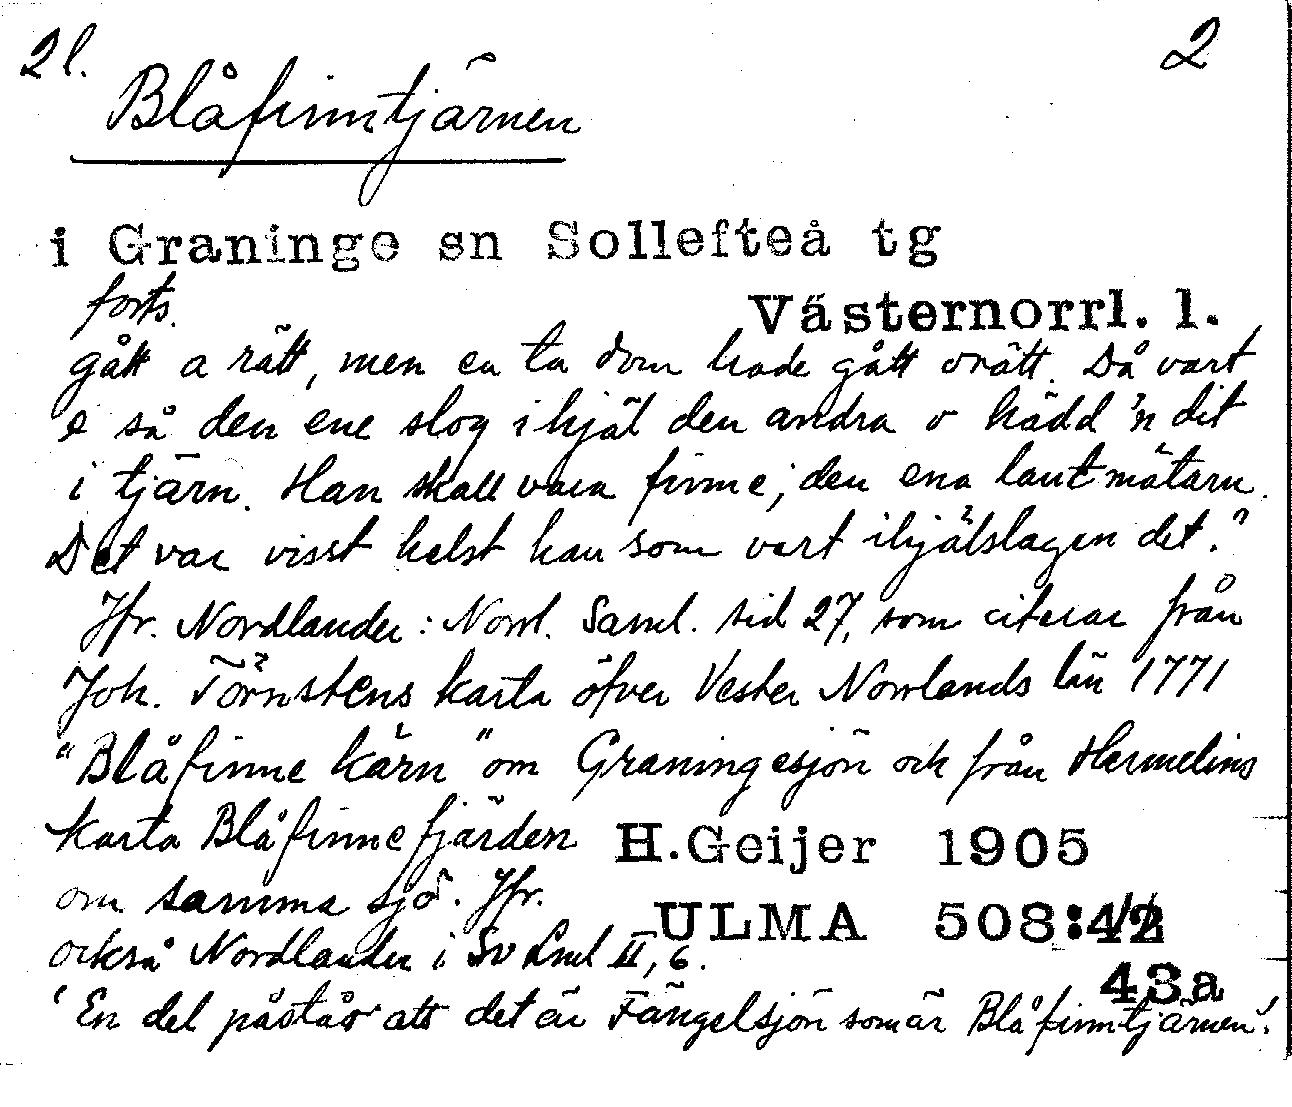 2 l. 2
Blåfinntjärnen
i Graninge sn Sollefteå tg
forts.
Västernorrl. l.
gått a rätt, men en ta dom hade gått orätt. Då vart
e så den ene slog ihjäl den andra o kädd 'n dit
i tjärn. Han skall vara finne, den ena lantmätarn.
Det var visst helst han som vart ihjälslagen det."
Jfr. Nordlander: Norrl. Saml. sid 27, som citerar från
Joh. Törnstens karta öfver Vester Norrlands län 1771
"Blåfinne kärn" om Graningesjön och från Hermelins
karta Blåfinnefjärden
H.Geijer 1905
om samma sjö. Jfr.
ULMA 508:42
också Nordlander i Sv Lml II, 6.
43a
'En del påstår att det är Fängelsjön som är Blåfinntjärnen'.